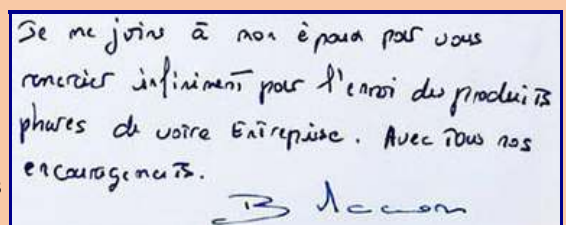 Je me joins à mon époux pour vous
remercier infiniment pour l'envoi des produits
phares de votre Entreprise. Avec Tous nos
encouragements.
B